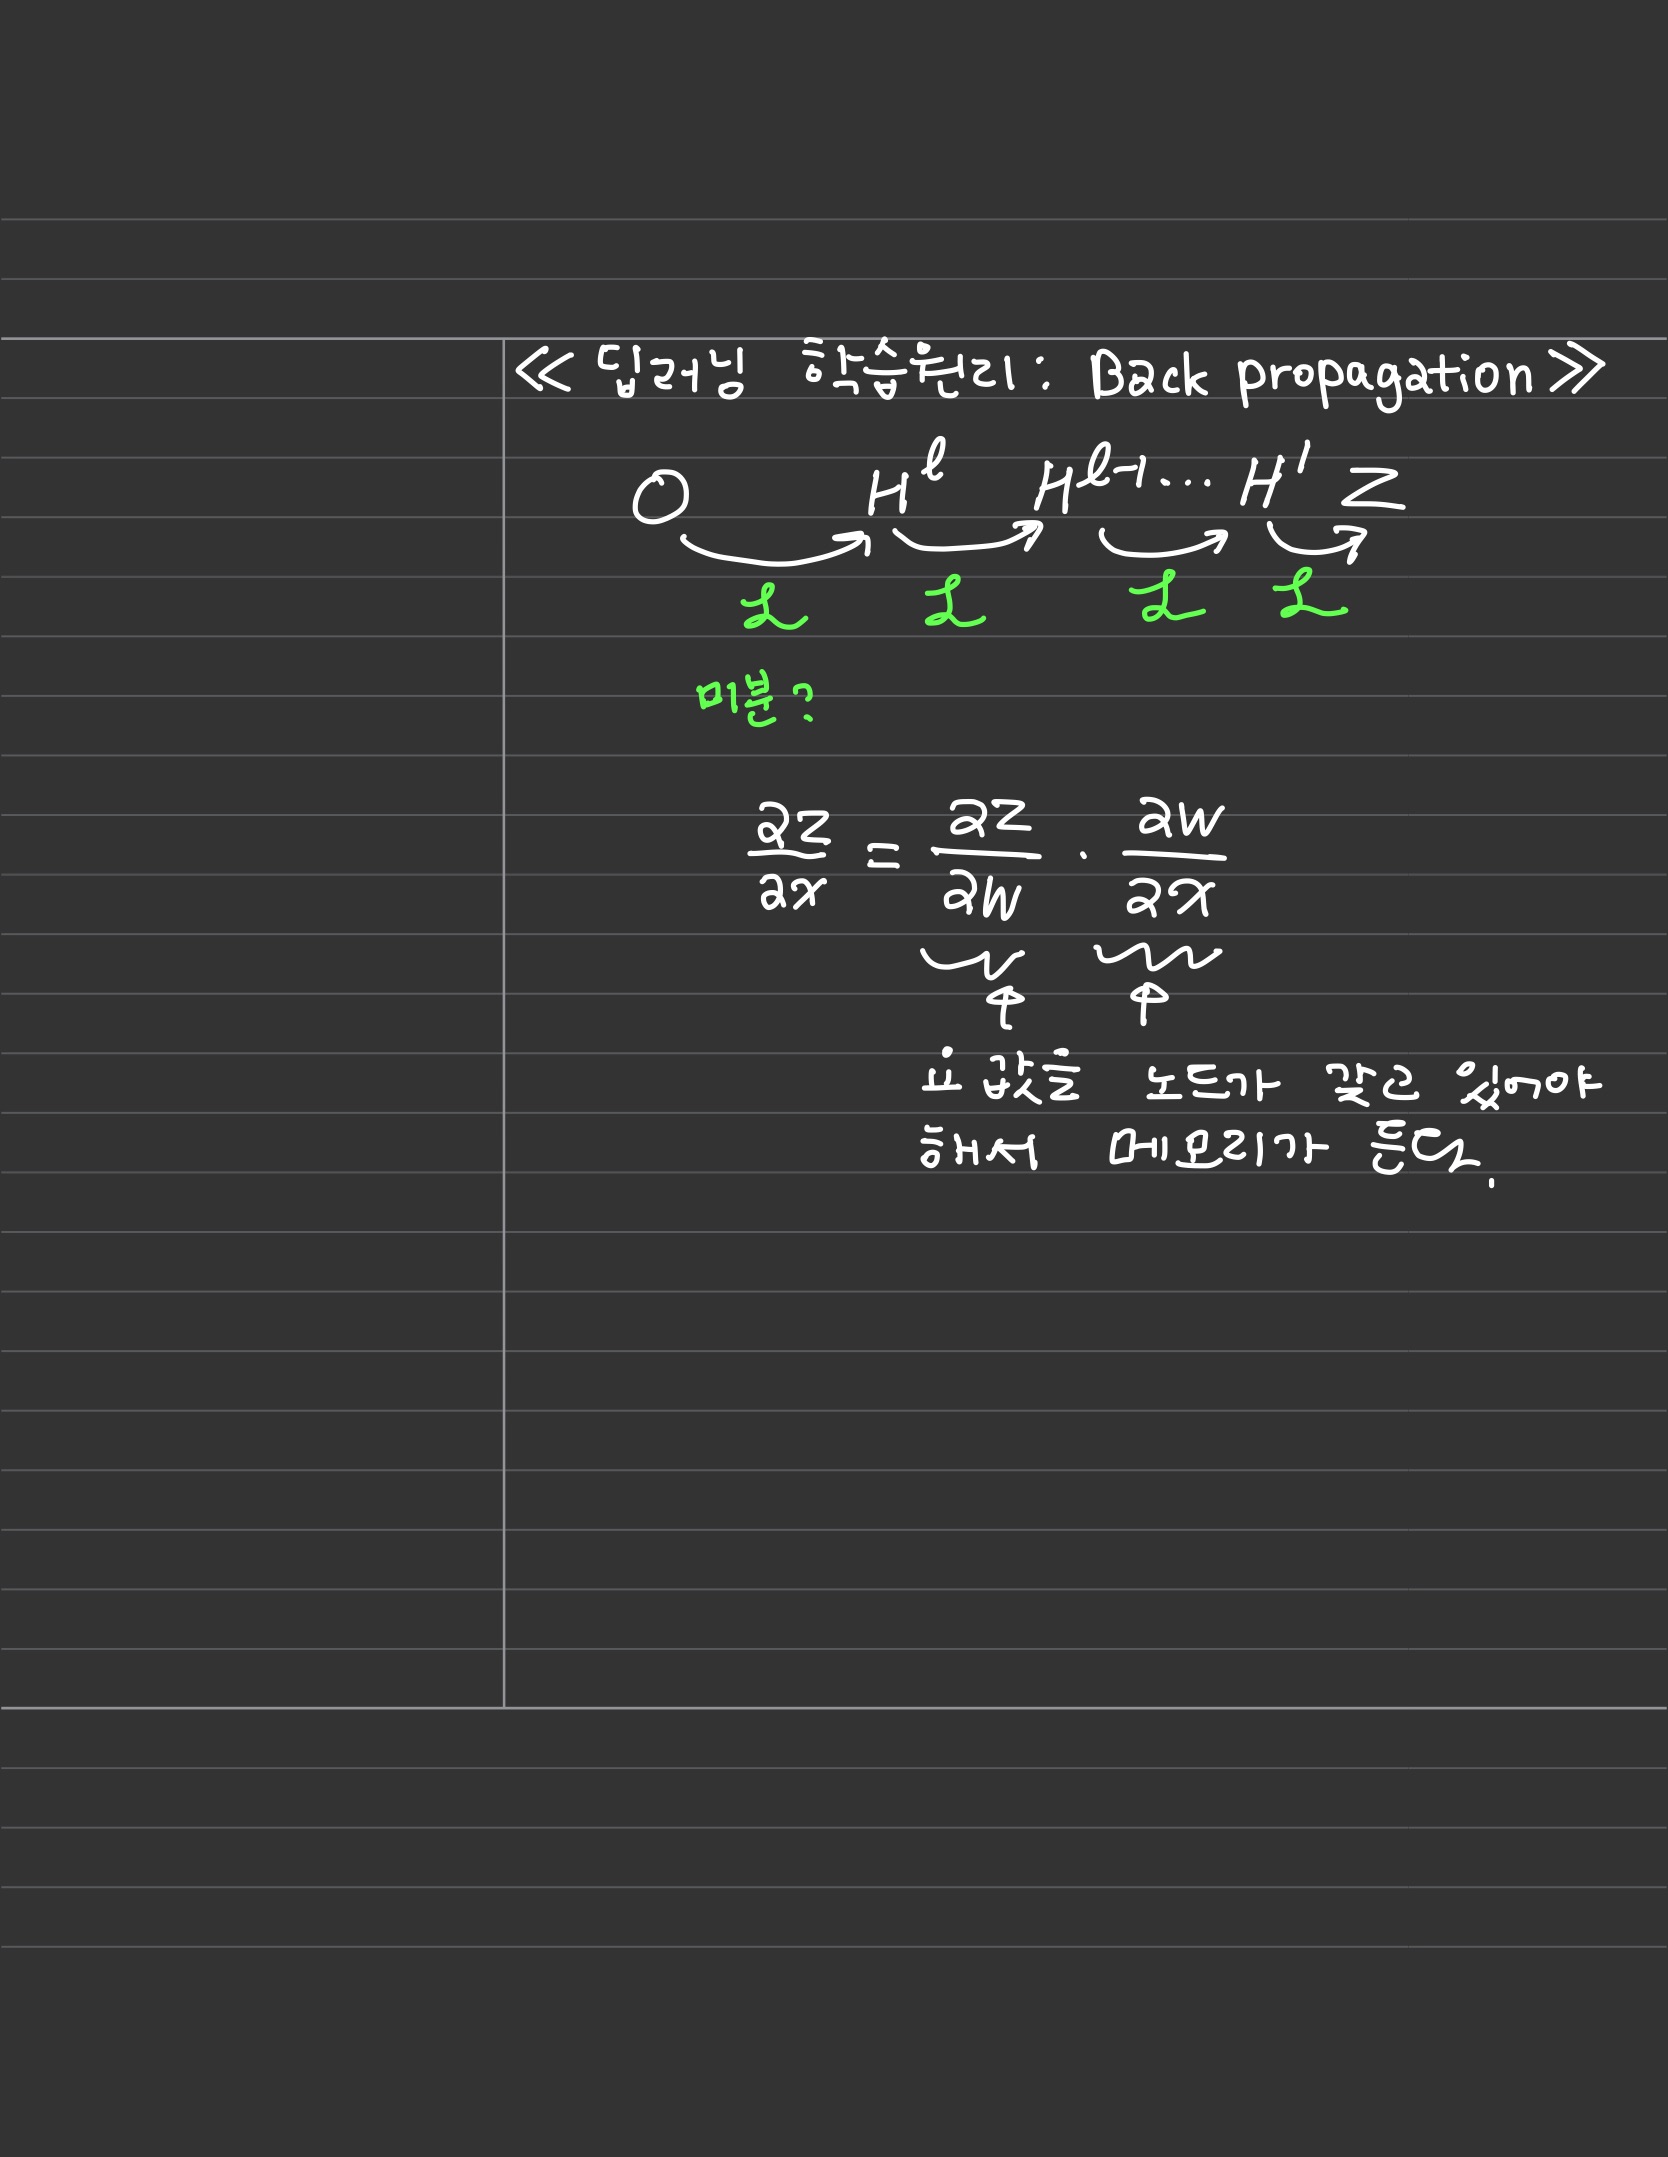 << 딥러닝 학습원리 : Back propagation >>
O H^l H^l-1 ... H' Z
L L L L
미분?
∂z/∂x = ∂z/∂w · ∂w/∂x
요 값을 노드가 갖고 있어야
해서 메모리가 든다.